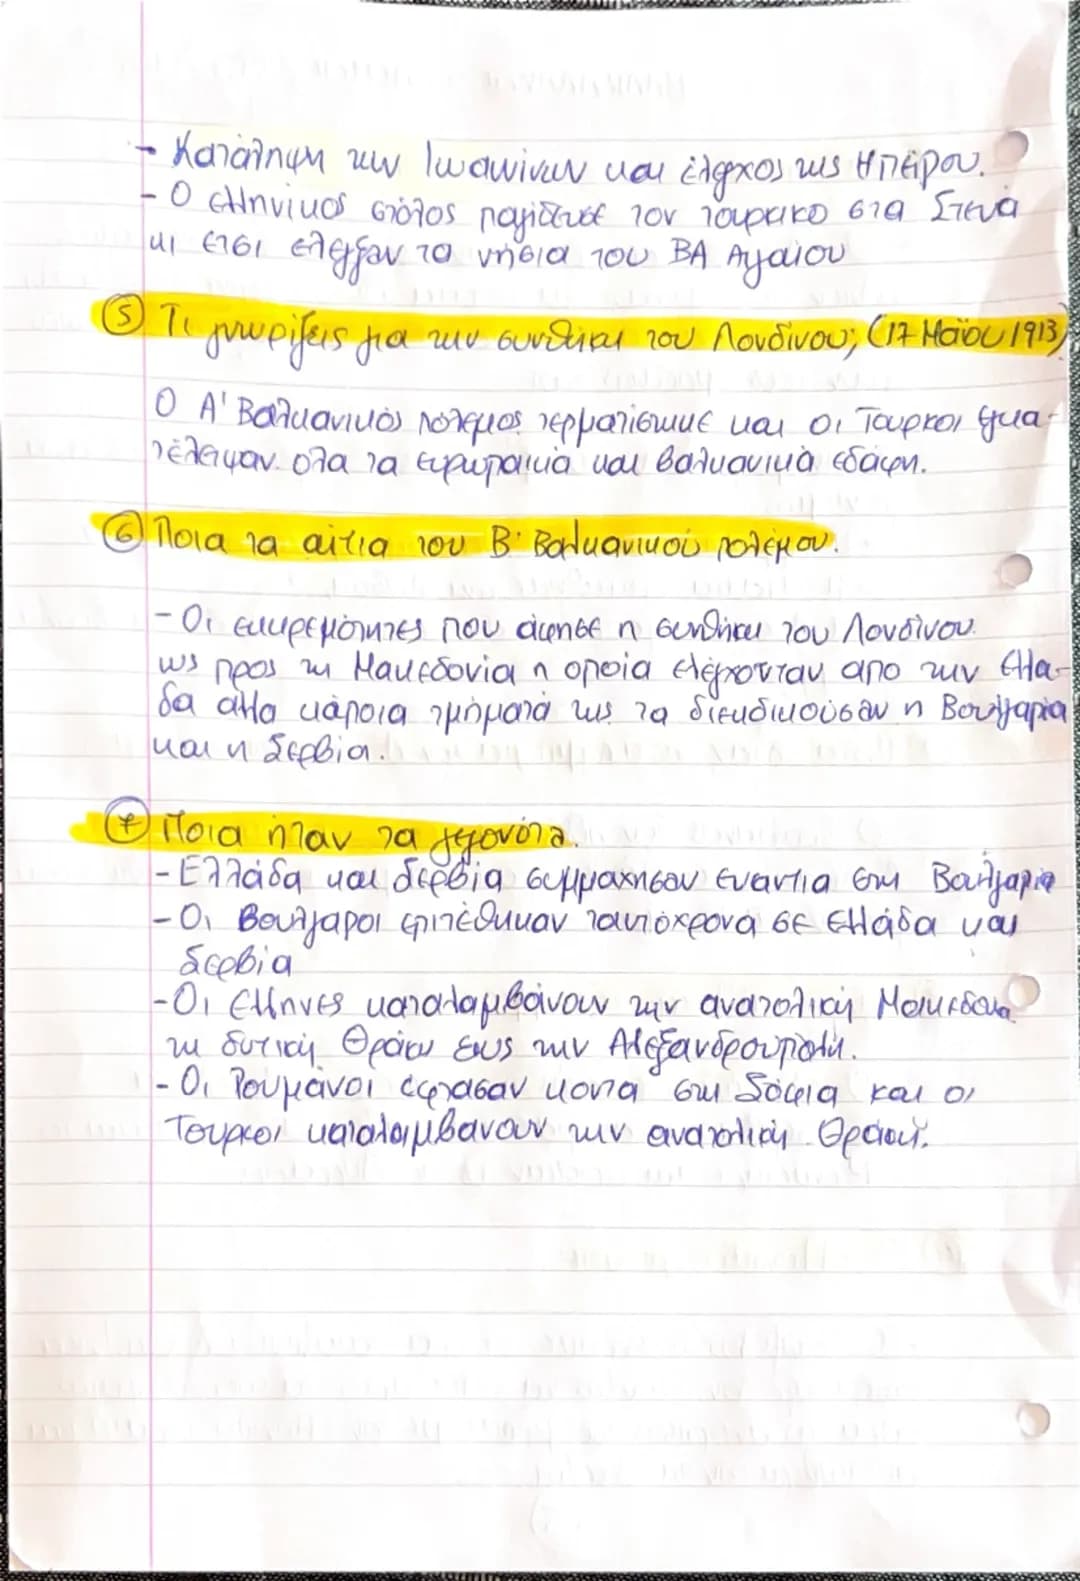 - Κατάληψη των Ιωαννίνων και έλεγχος της Ηπείρου.
- Ο ελληνικός στόλος παγίδευσε τον τουρκικο στα Στενά
κι ετσι ελεγξαν τα νησια του ΒΑ Αγαίου
⑤ Τι γνωρίζεις για την συνθήκη του Λονδίνου; (17 Μαϊου 1913)
Ο Α' Βαλκανικός πόλεμος τερματίστηκε και οι Τουρκοι εγκα-
τέλειψαν ολα τα ευρωπαικά και βαλκανικά εδάφη.
⑥ Ποια τα αίτια του Β' Βαλκανικού πολέμου.
- Οι εκκρεμότητες που άφησε η συνθήκη του Λονδίνου
ως προς τη Μακεδονία η οποία ελέγχονταν απο την Ελλα-
δα αλλα κάποια τμήματά της τα διεκδικούσαν η Βουλγαρία
και η Σερβία.
⑦ Ποια ήταν τα γεγονότα.
- Ελλάδα και Σερβία συμμαχησαν εναντια στη Βουλγαρία
- Οι Βουλγαροι επιτέθηκαν ταυτόχρονα σε Ελλάδα και
Σερβία
- Οι Ελληνες καταλαμβάνουν την ανατολική Μακεδονία
τη δυτική Θράκη έως την Αλεξανδρουπολη.
- Οι Ρουμάνοι έφτασαν κοντα στη Σόφια και οι
Τουρκοι καταλαμβανουν την ανατολική Θράκη.